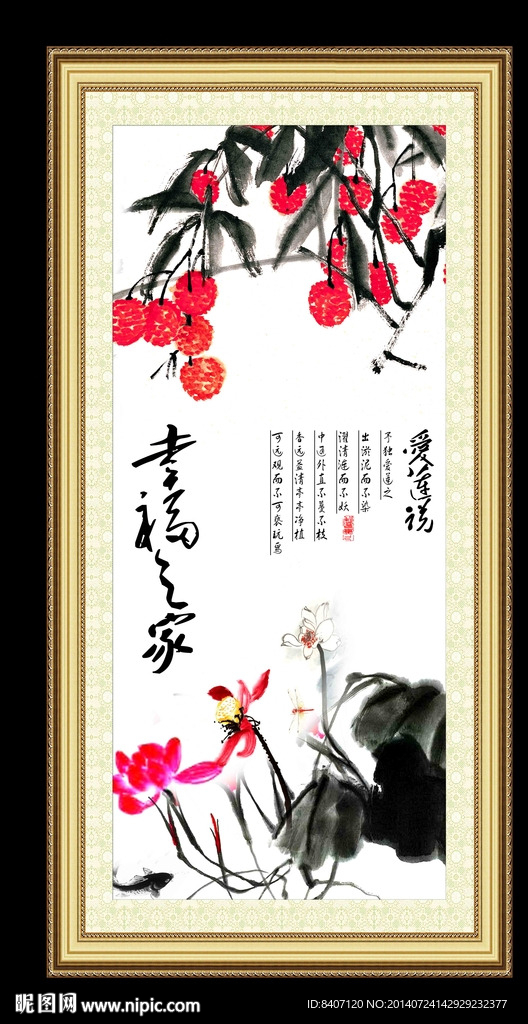 愛蓮说
予独爱莲之
出淤泥而不染
濯清涟而不妖
中通外直不蔓不枝
香远益清亭亭净植
可远观而不可亵玩焉
幸福之家
昵图网 www.nipic.com
ID:8407120 NO:20140724142929232377